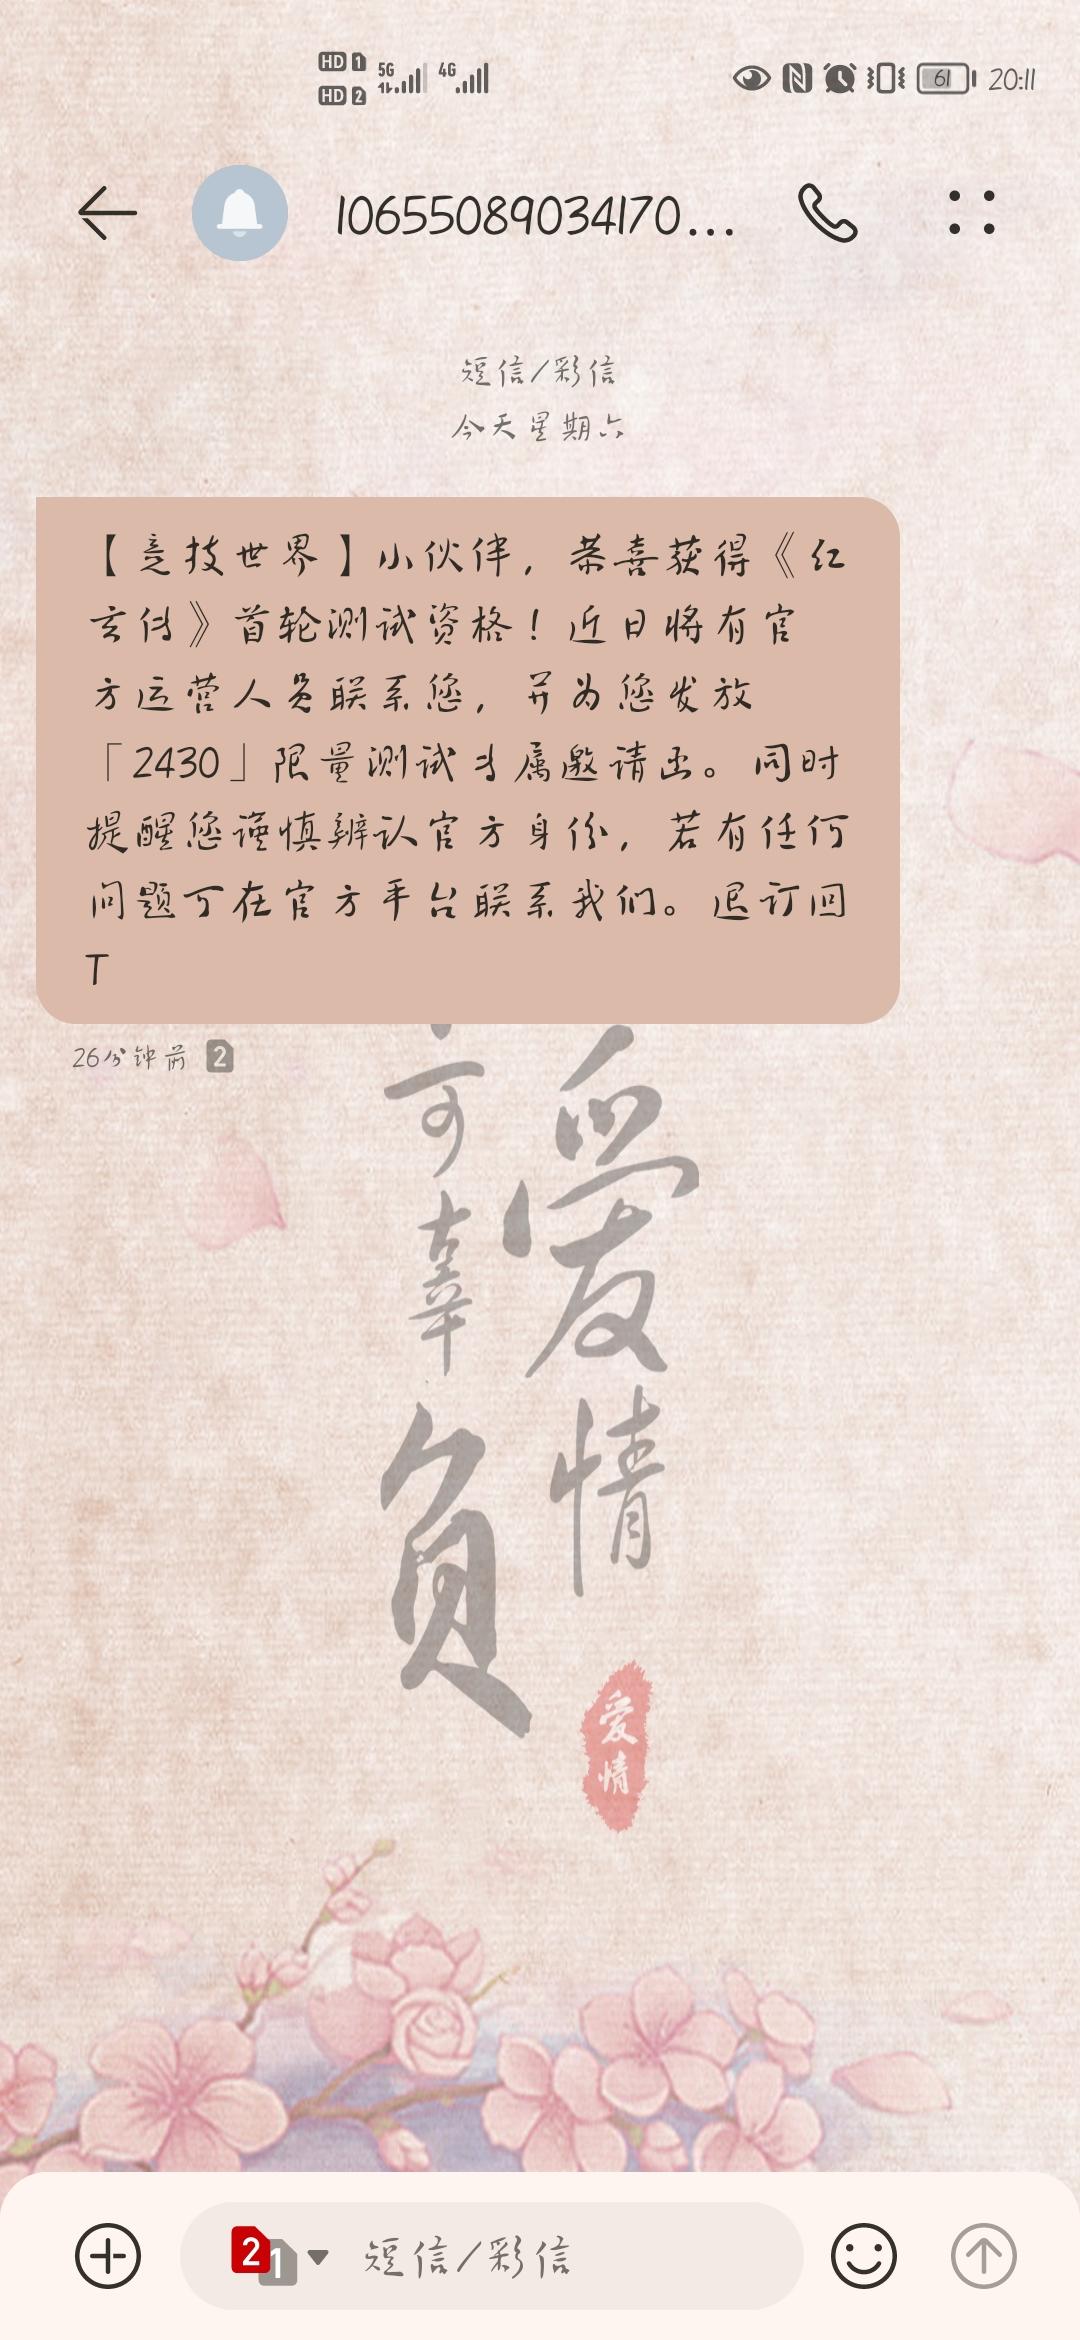 HD 1 5G 4G 61 20:11
HD 2
10655089034170...
短信/彩信
今天星期六
【竞技世界】小伙伴，恭喜获得《红
玄传》首轮测试资格！近日将有官
方运营人员联系您，并为您发放
「2430」限量测试专属邀请函。同时
提醒您谨慎辨认官方身份，若有任何
问题可在官方平台联系我们。退订回
T
26分钟前 2
爱情
可辜负
爱情
2 1 短信/彩信